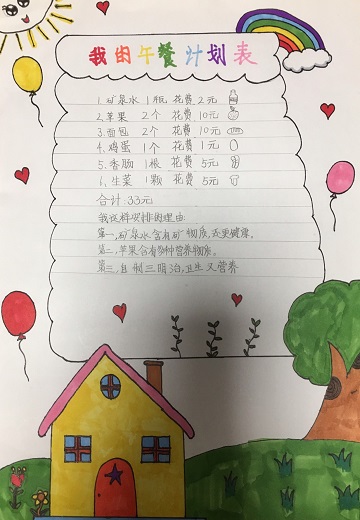 我的午餐计划表
1.矿泉水 1瓶 花费 2元
2.苹果 2个 花费 10元
3.面包 2个 花费 10元
4.鸡蛋 1个 花费 1元
5.香肠 1根 花费 5元
6.生菜 1颗 花费 5元
合计 33元
我这样安排的理由:
第一,矿泉水含有矿物质,还更健康。
第二,苹果含有多种营养物质。
第三,自制三明治,卫生又营养